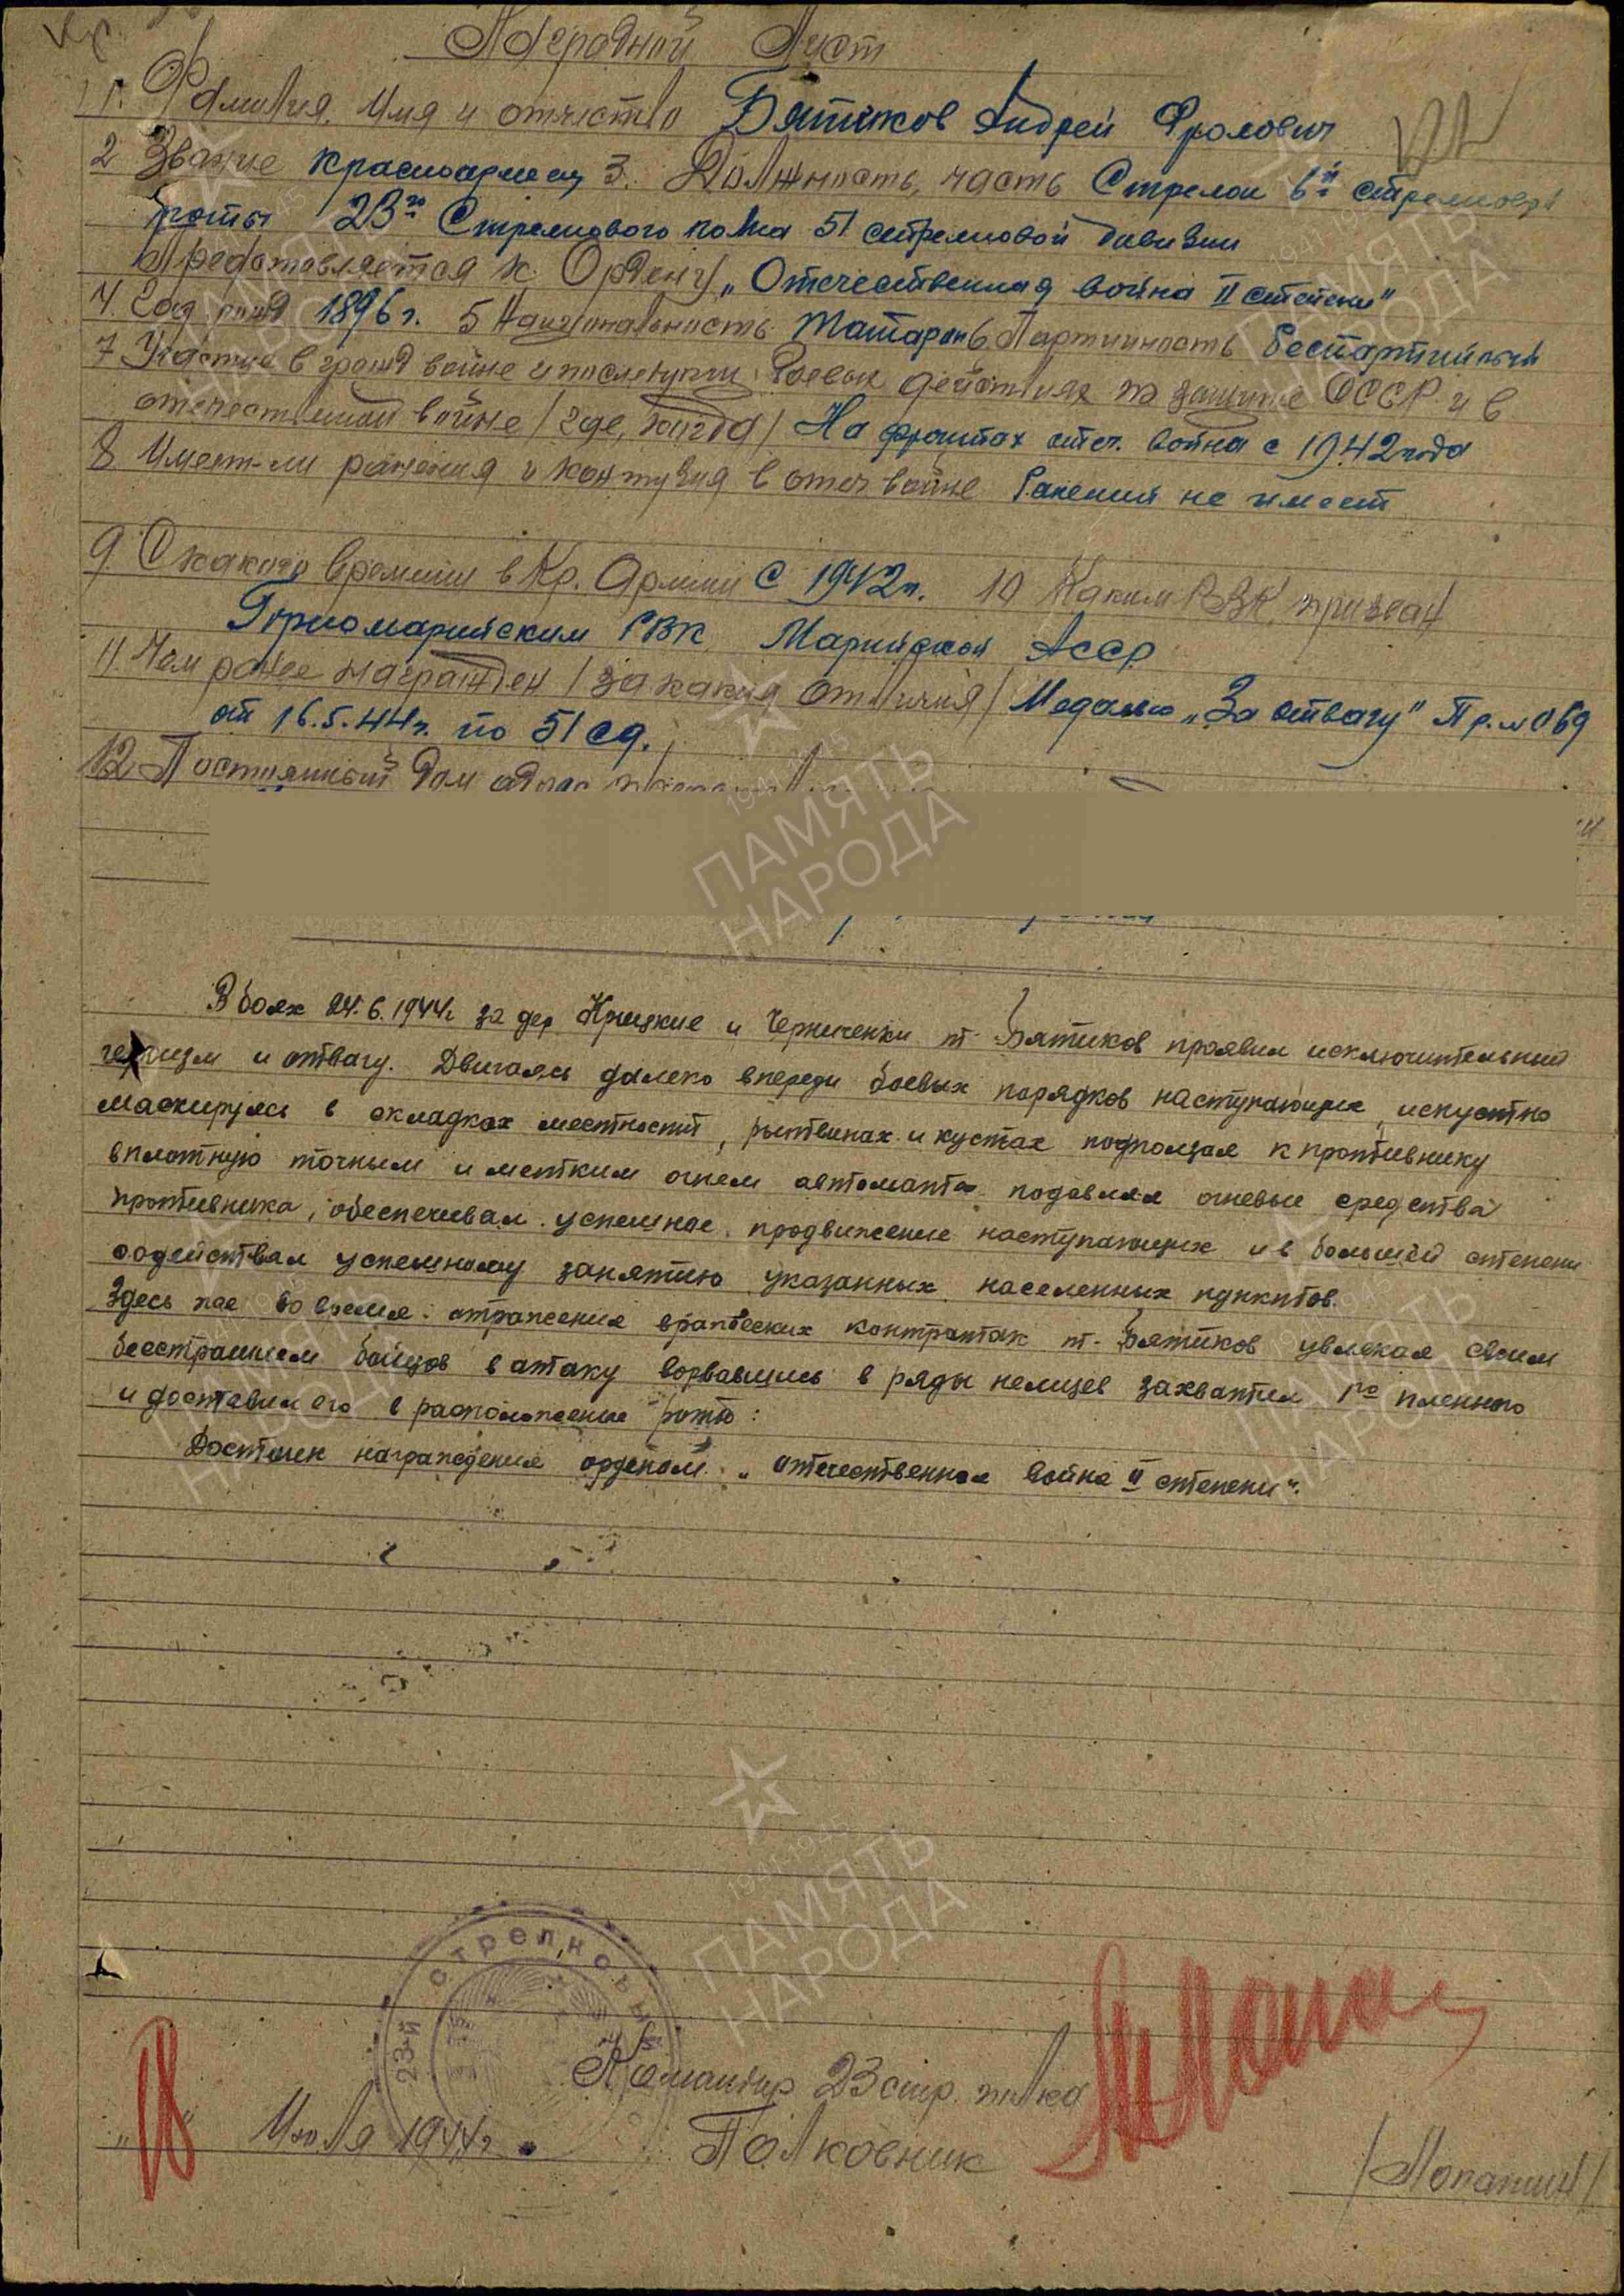 Наградной Лист
1. Фамилия, Имя и отчество Бятиков Андрей Фролович
2 Звание красноармеец 3. Должность, часть Стрелок 6й стрелковой
роты 23го Стрелкового полка 51 стрелковой дивизии
Представляется к Ордену „Отечественная война II степени"
4. Год рожд 1896 г. 5 Национальность Татарин 6 Партийность беспартийный
7 Участие в гражд войне и последующих боевых действиях по защите СССР и в
отечественной войне /где, когда/ На фронтах отеч. война с 1942 года
8 Имеет-ли ранения и контузия в отеч войне Ранений не имеет
9 С какого времени в Кр. Армии С 1942 г. 10 Каким РВК призван
Горномарийским РВК Марийской АССР
11. Чем ранее награжден /за какия отличия/ Медалью „За отвагу" Пр. № 069
от 16.5.44 г. по 51 сд.
12 Постоянный дом адрес
В боях 24.6.1944 г за дер Крицкие и Черниченки т. Бятиков проявил исключительный
героизм и отвагу. Двигаясь далеко впереди боевых порядков наступающих, искустно
маскируясь в складках местности, рытвинах и кустах подползая к противнику
вплотную точным и метким огнем автомата подавлял огневые средства
противника, обеспечивал успешное продвижение наступающих и в большей степени
содействвал успешному занятию указанных населенных пунктов.
Здесь же во время отражения вражеских контратак т. Бятиков увлекая своим
бесстрашием бойцов в атаку ворвавшись в ряды немцев захватил 1го пленного
и доставил его в расположение роты:
Достоин награждения орденом „ отечественная война II степени".
23-й стрелковый
Командир 23 стр. полка
„18" Июля 1944 г. Полковник
/Лопатин/
ПАМЯТЬ НАРОДА
1941-1945